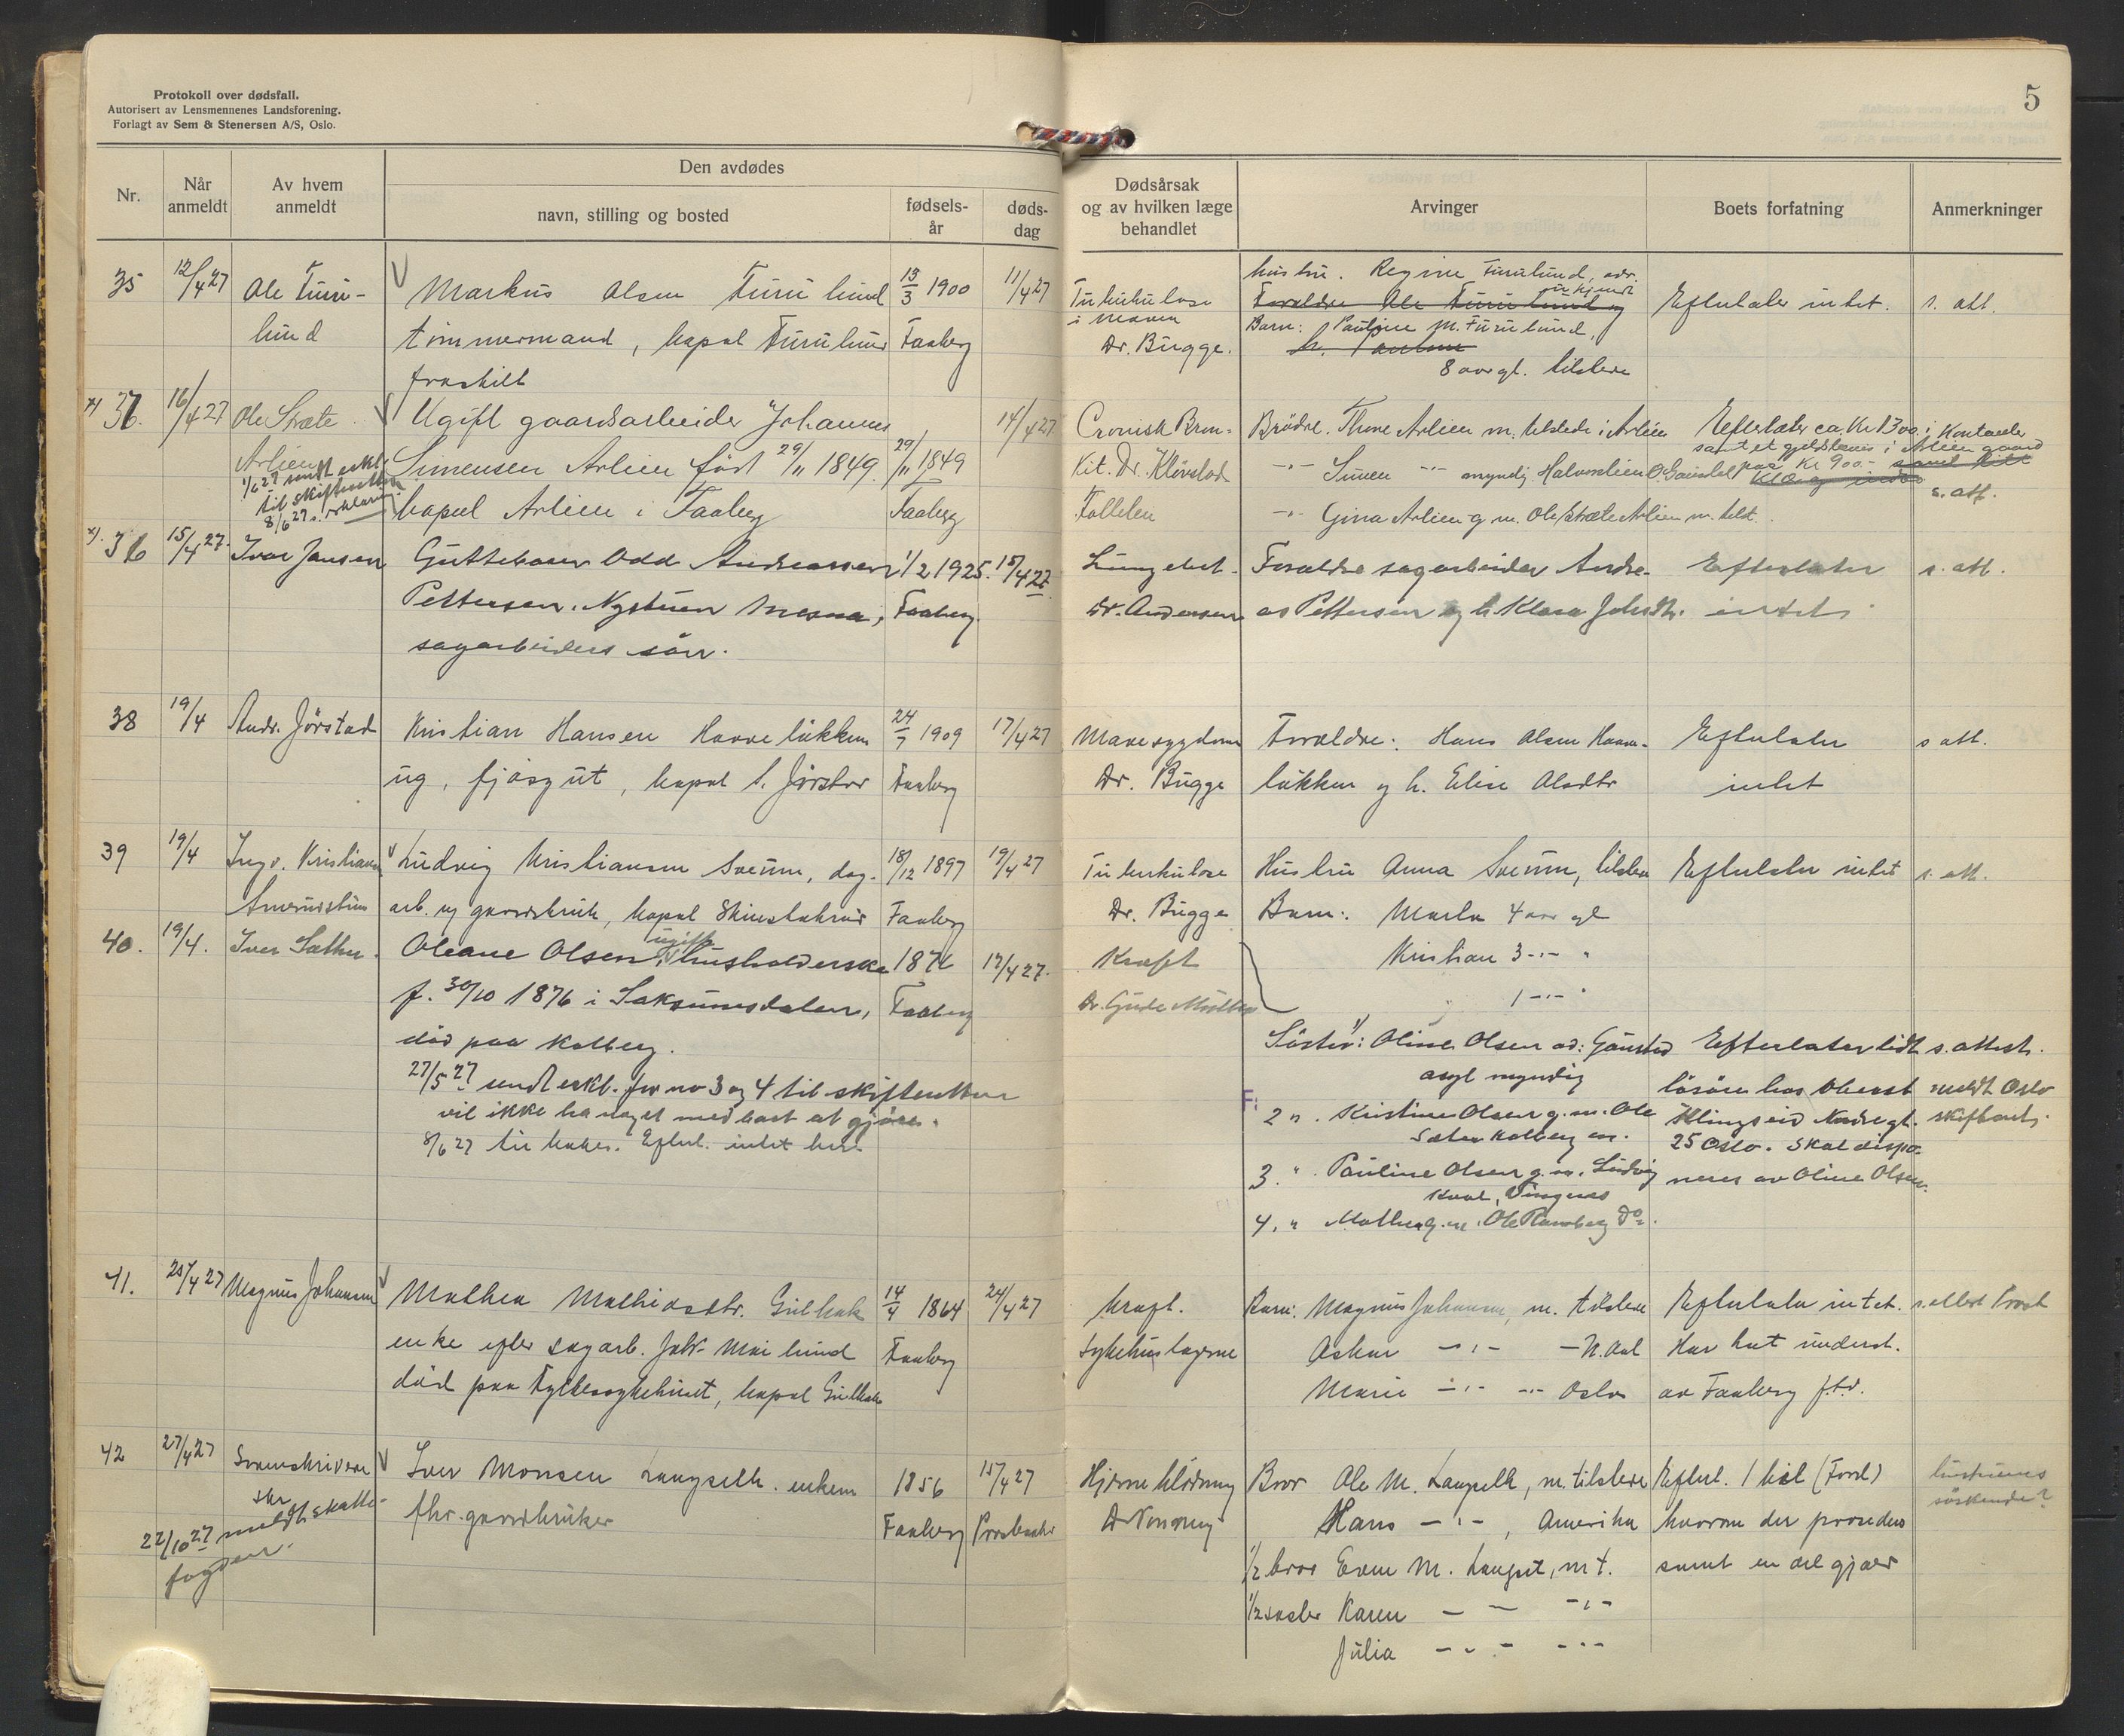 Protokoll over dødsfall.
Autorisert av Lensmennenes Landsforening.
Forlagt av Sem & Stenersen A/S, Oslo.
5
Nr.
Når anmeldt
Av hvem anmeldt
Den avdødes
navn, stilling og bosted
fødsels-år
døds-dag
Dødsårsak og av hvilken læge behandlet
Arvinger
Boets forfatning
Anmerkninger
35 12/4 27 Ole Furu-
lund
Markus Olsen Furulund 13/3 1900 11/4 27
timmermand, bopæl Furulund Faaberg
fraskilt
Tuberkulose
i maven
Dr. Bugge.
hustru. Regine Furulund, adr.
ukjendt
Forældre Ole Furulund og
Barn: Pauline M. Furulund,
h. Pauline
8 aar gl. tilstede
Efterlater intet. s. att.
x) 37. 16/4 27 Ole Stræte
Arlien
1/6 27 sendt erkl.
til skifteretten
8/6 27 s. erklæring.
Ugift gaardsarbeider Johannes 14/4 27
Simensen Arlien født 29/11 1849. 29/11 1849
bopæl Arlien i Faaberg Faaberg
Cronisk Bron-
kit. Dr. Kløvstad
Follebu
Brødre. Thore Arlien m. tilstede i Arlien
-"- Simen -"- myndig. Ø. Gausdal
-"- Gina Arlien g. m. Ole Stræte Arlien m. tilst.
Efterlater ca. Kr. 1300 i Kontanter
samt et gjeldsbevis i Arlien gaard
paa Kr 900.-
s. att.
x). 36 15/4 27. Ivar Jansen
Guttebarn Odd Andreassen 1/2 1925. 15/4 27
Pettersen. Nystuen Mesna, Faaberg.
sagarbeiders sønn.
Lungebet.
Dr. Andersen
Forældre sagarbeider Andre-
as Pettersen og h. Klara Johsdtr.
Efterlater
intet
s. att.
38 19/4 Andr. Jørstad
Kristian Hansen Haavelükken 24/7 1909 17/4 27
ug, fjøsgut, bopæl S. Jørstad Faaberg
Mavesygdom
Dr. Bugge
Forældre: Hans Olsen Haave-
lükken og h. Elise Olsdtr
Efterlater
intet
s att.
39 19/4 Ingv. Kristiansen
Ludvig Kristiansen Sveum, dag- 18/12 1897 19/4 27
arb. og gaardbruk, bopæl Skinstakrud Faaberg
Tuberkulose
Dr. Bugge
Hustru Anna Sveum, tilstede
Barn: Marta 4 aar gl
Kristian 3 -"- "
1 -"- "
Efterlater intet s. att.
40. 19/4. Iver Sæther.
Oleane Olsen, ugift husholderske 1876 17/4 27.
f. 30/10 1876 i Saksumsdalen, Faaberg
død paa Kolberg.
27/5 27 sendt erkl. for no 3 og 4 til skifteretten
vil ikke ha noget med boet at gjøre.
8/6 27 tilbakes. Efterl. intet her
Kræft
Dr. Gude Müller
Søster: 1) Oline Olsen ad: Gausdal
asyl myndig
2 ". Kristine Olsen g. m. Ole
Sæter Kolberg m.
3. " Pauline Olsen g. m. Ludvig
Kval, Vingnes
4. " Mathea g. m. Ole Ramberg Do.
Efterlater lidt s. attest.
løsøre hos Oberst meldt Oslo
Klingseid Nordregt. skifteret.
25 Oslo. Skal dispo-
neres av Oline Olsen.
41. 25/4 27 Magnus Johansen
Mathea Mathiasdtr. Gulbak 14/4 1864 24/4 27
enke efter sagarb. Joh. Mælund Faaberg
død paa Fylkessykehuset, bopæl Gulbak
Kræft.
Sykehuslægene
Barn: Magnus Johansen, m. tilstede
Oskar -"- - N. Aal
Marie -"- -"- Oslo
Efterlater intet. s. attest Prost
Har hat underst.
av Faaberg f.t.v.
42 27/4 27 Sorenskriveren
22/10 27 meldt skatte-
fogden.
Iver Monsen Laupselh. enkem 1856 15/4 27
fhv. gaardbruker Faaberg
Hjerneblødning
Bror Ole M. Laupselh, m. tilstede
Hans -"- , Amerika
1/2 bror Even M. Laupsel, m t.
1/2 søster Karen - - -"-
Julia -"- -"-
Efterl. 1 bil (Ford)
hvorom der prosederes
samt en del gjæld
hustruens
søskende?